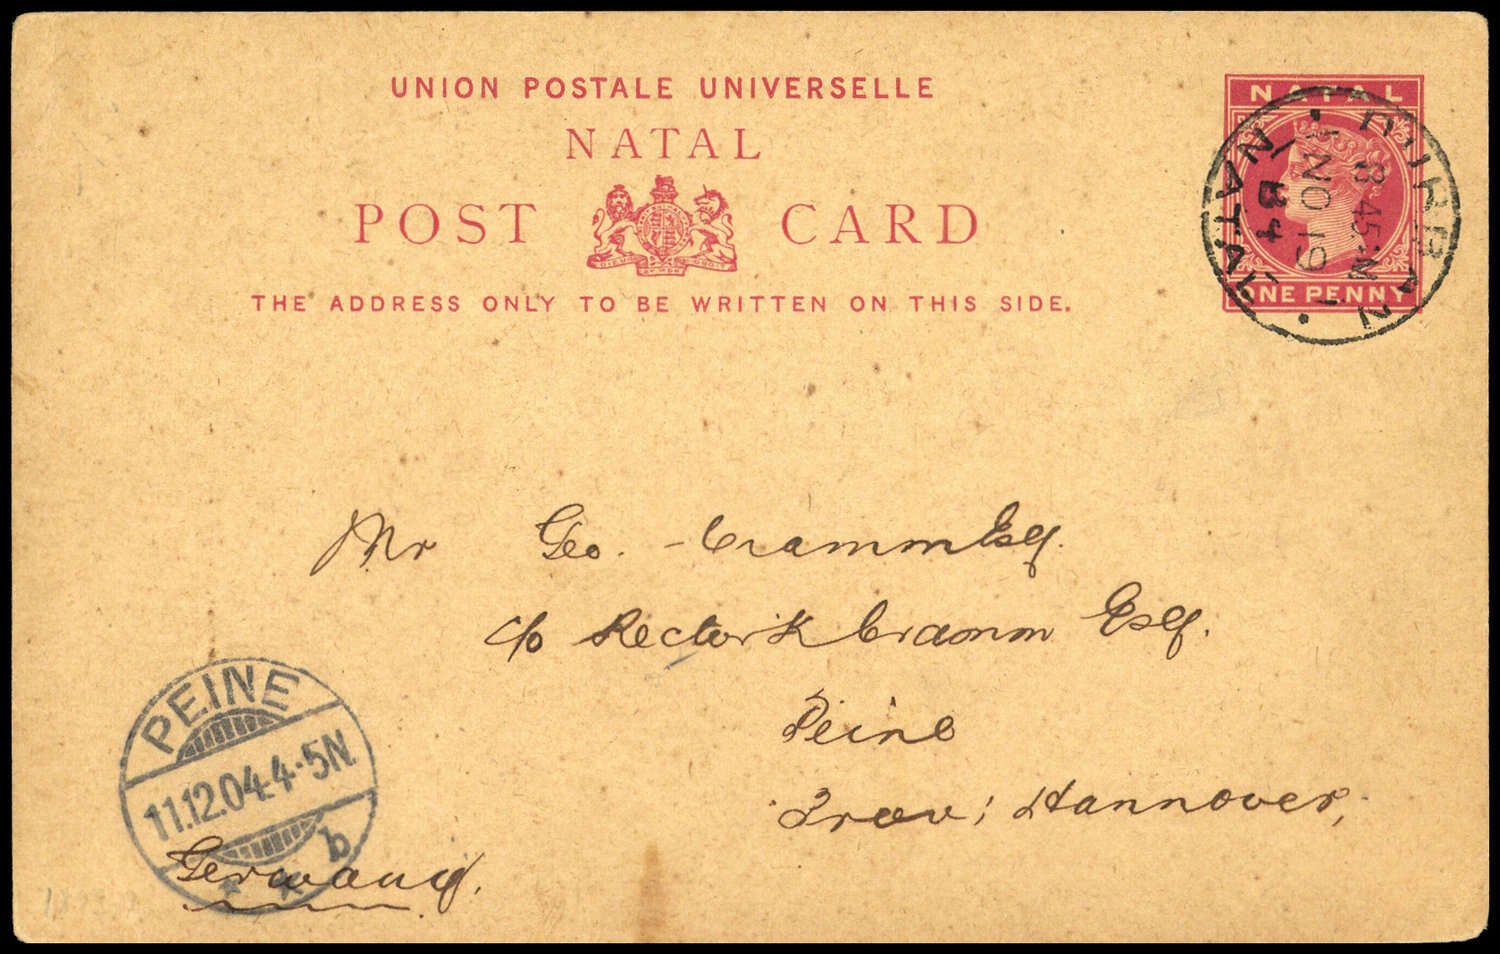 UNION POSTALE UNIVERSELLE
NATAL
POST CARD
THE ADDRESS ONLY TO BE WRITTEN ON THIS SIDE.
NATAL
ONE PENNY
DURBAN
8 45 M
NO 19
04
NATAL
Mr Geo. Cramm Esq.
c/o Rector K Cramm Esq.
Peine
Prov; Hannover,
Germany.
PEINE
11.12.04.4-5N.
b